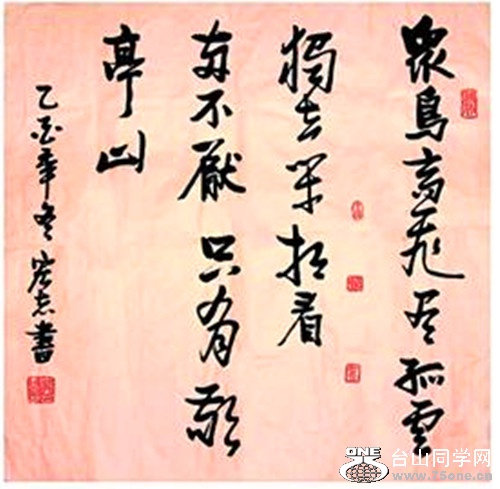 眾鳥高飛尽孤雲
獨去闲相看
两不厭只有敬
亭山
乙酉年冬宏志書
ONE
台山同学网
www.75one.cn